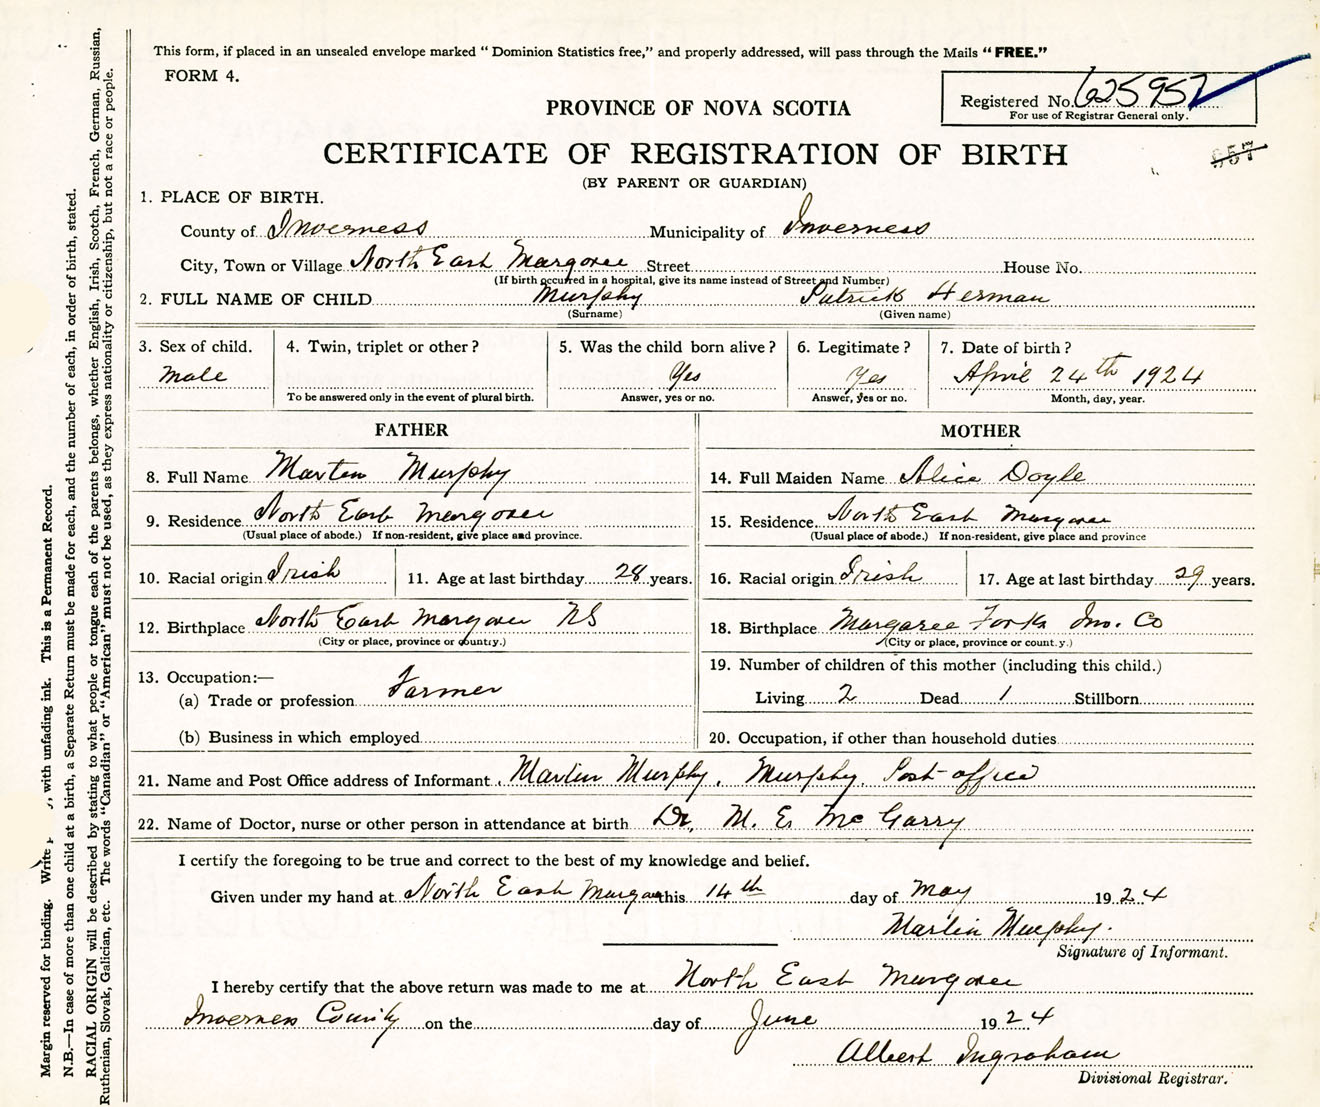 This form, if placed in an unsealed envelope marked "Dominion Statistics free," and properly addressed, will pass through the Mails "FREE."
FORM 4.
Registered No. 625952
For use of Registrar General only.
PROVINCE OF NOVA SCOTIA
957
CERTIFICATE OF REGISTRATION OF BIRTH
(BY PARENT OR GUARDIAN)
1. PLACE OF BIRTH.
County of Inverness Municipality of Inverness
City, Town or Village North East Margaree Street House No.
(If birth occurred in a hospital, give its name instead of Street and Number)
2. FULL NAME OF CHILD Murphy Patrick Herman
(Surname) (Given name)
3. Sex of child. 4. Twin, triplet or other? 5. Was the child born alive? 6. Legitimate? 7. Date of birth?
Male Yes Yes April 24th 1924
To be answered only in the event of plural birth. Answer, yes or no. Answer, yes or no. Month, day, year.
FATHER MOTHER
8. Full Name Marten Murphy 14. Full Maiden Name Alice Doyle
9. Residence North East Margaree 15. Residence North East Margaree
(Usual place of abode.) If non-resident, give place and province. (Usual place of abode.) If non-resident, give place and province
10. Racial origin Irish 11. Age at last birthday 28 years. 16. Racial origin Irish 17. Age at last birthday 29 years.
12. Birthplace North East Margaree NS 18. Birthplace Margaree Forks Inv. Co
(City or place, province or country.) (City or place, province or county.)
13. Occupation:— 19. Number of children of this mother (including this child.)
(a) Trade or profession Farmer Living 2 Dead 1 Stillborn
(b) Business in which employed 20. Occupation, if other than household duties
21. Name and Post Office address of Informant. Martin Murphy, Murphy Post-office
22. Name of Doctor, nurse or other person in attendance at birth Dr. M. E. McGarry
I certify the foregoing to be true and correct to the best of my knowledge and belief.
Given under my hand at North East Margaree this 14th day of May 1924
Martin Murphy.
Signature of Informant.
I hereby certify that the above return was made to me at North East Margaree
Inverness County on the day of June 1924
Albert Ingraham
Divisional Registrar.
Margin reserved for binding. Write with unfading ink. This is a Permanent Record.
N.B.—In case of more than one child at a birth, a Separate Return must be made for each, and the number of each, in order of birth, stated.
RACIAL ORIGIN will be described by stating to what people or tongue each of the parents belongs, whether English, Irish, Scotch, French, German, Russian,
Ruthenian, Slovak, Galician, etc. The words "Canadian" or "American" must not be used, as they express nationality or citizenship, but not a race or people.